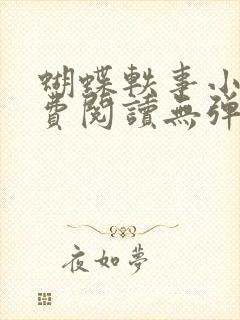 蝴蝶軼事小
費閱讀無彈
夜如夢